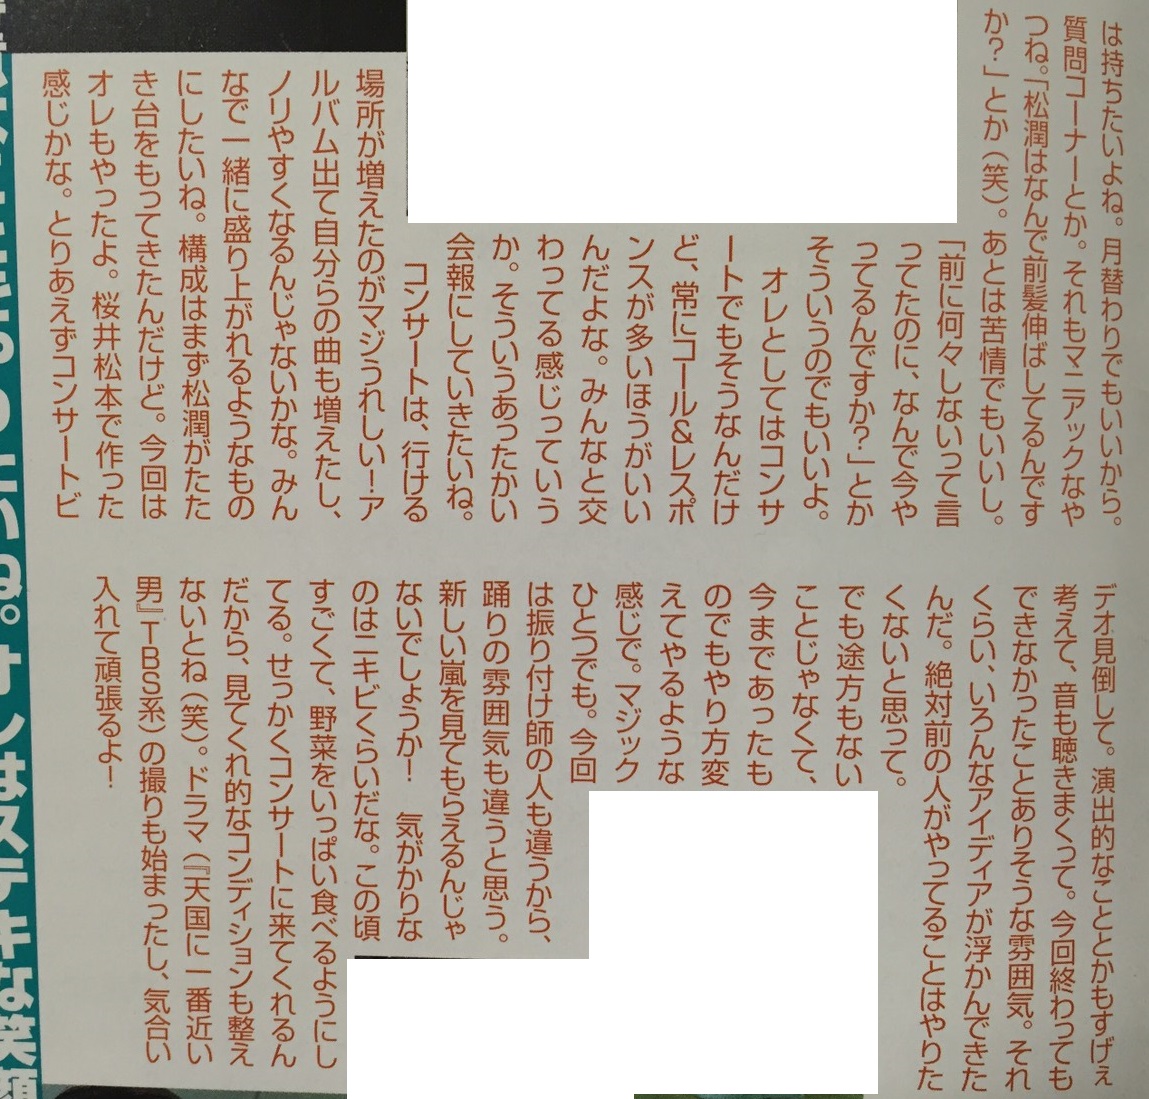 は持ちたいよね。月替わりでもいいから。
質問コーナーとか。それもマニアックなや
つね。「松潤はなんで前髪伸ばしてるんです
か？」とか（笑）。あとは苦情でもいいし。
「前に何々しないって言
ってたのに、なんで今や
ってるんですか？」とか
そういうのでもいいよ。
オレとしてはコンサ
ートでもそうなんだけ
ど、常にコール&レスポ
ンスが多いほうがいい
んだよな。みんなと交
わってる感じっていう
か。そういうあったかい
会報にしていきたいね。
コンサートは、行ける
場所が増えたのがマジうれしい！ア
ルバム出て自分らの曲も増えたし、
ノリやすくなるんじゃないかな。みん
なで一緒に盛り上がれるようなもの
にしたいね。構成はまず松潤がたた
き台をもってきたんだけど。今回は
オレもやったよ。桜井松本で作った
感じかな。とりあえずコンサートビ
デオ見倒して。演出的なこととかもすげぇ
考えて、音も聴きまくって。今回終わっても
できなかったことありそうな雰囲気。それ
くらい、いろんなアイディアが浮かんできた
んだ。絶対前の人がやってることはやりた
くないと思って。
でも途方もない
ことじゃなくて、
今まであったも
のでもやり方変
えてやるような
感じで。マジック
ひとつでも。今回
は振り付け師の人も違うから、
踊りの雰囲気も違うと思う。
新しい嵐を見てもらえるんじゃ
ないでしょうか！　気がかりな
のはニキビくらいだな。この頃
すごくて、野菜をいっぱい食べるようにし
てる。せっかくコンサートに来てくれるん
だから、見てくれ的なコンディションも整え
ないとね（笑）。ドラマ（『天国に一番近い
男』TBS系）の撮りも始まったし、気合い
入れて頑張るよ！
いね。オレはステキな笑顔